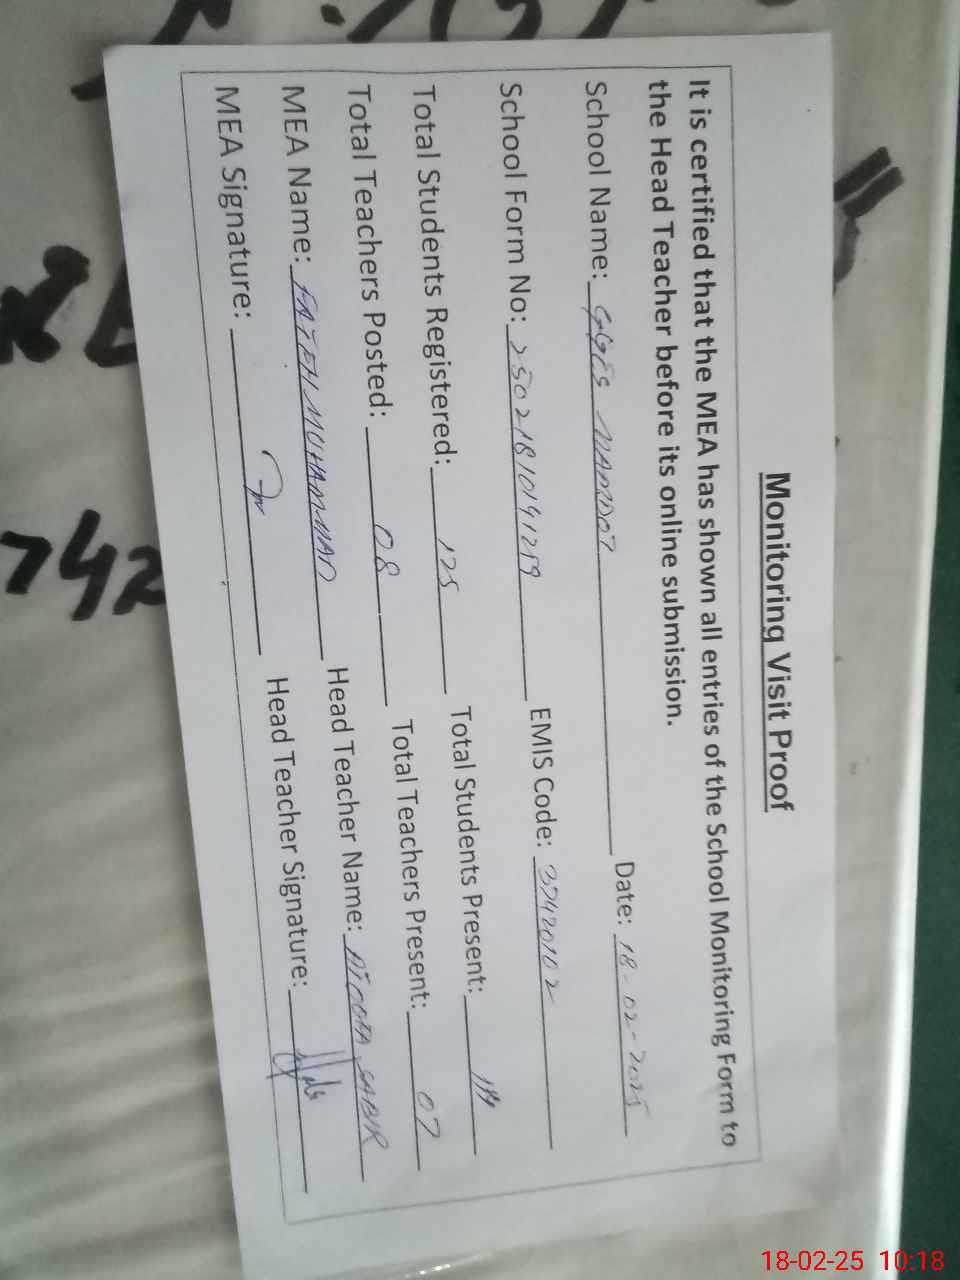 Monitoring Visit Proof
It is certified that the MEA has shown all entries of the School Monitoring Form to
the Head Teacher before its online submission.
School Name: GGES MAMDOT Date: 18-02-2025
School Form No: 25021810141259 EMIS Code: 37420102
Total Students Registered: 125 Total Students Present: 114
Total Teachers Posted: 08 Total Teachers Present: 07
MEA Name: FATEH MUHAMMAD Head Teacher Name: SABIR
MEA Signature: Head Teacher Signature:
742
18-02-25 10:18